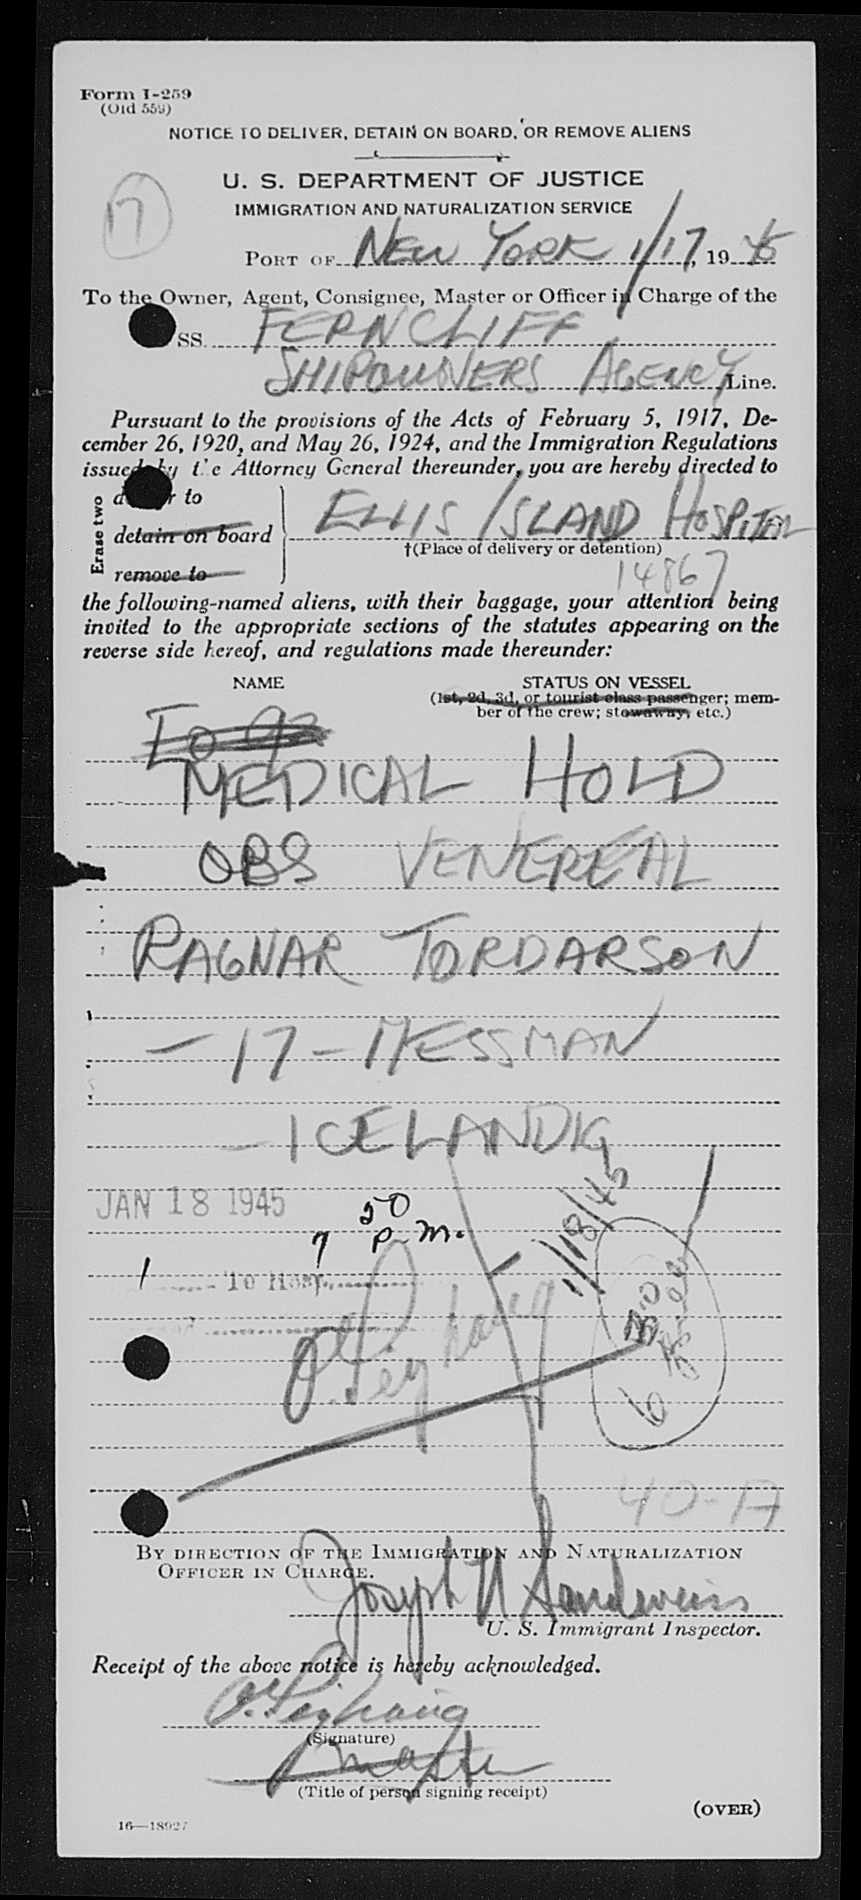 Form I-259
(Old 559)
NOTICE TO DELIVER, DETAIN ON BOARD, OR REMOVE ALIENS
U. S. DEPARTMENT OF JUSTICE
17
IMMIGRATION AND NATURALIZATION SERVICE
PORT OF NEW YORK 1/17, 1945
To the Owner, Agent, Consignee, Master or Officer in Charge of the
SS. FERNCLIFF
SHIPOWNERS AGENCY Line.
Pursuant to the provisions of the Acts of February 5, 1917, De-
cember 26, 1920, and May 26, 1924, and the Immigration Regulations
issued by the Attorney General thereunder, you are hereby directed to
Erase two
to
detain on board
remove to
ELLIS ISLAND HOSPITAL
†(Place of delivery or detention)
14867
the following-named aliens, with their baggage, your attention being
invited to the appropriate sections of the statutes appearing on the
reverse side hereof, and regulations made thereunder:
NAME STATUS ON VESSEL
(1st, 2d, 3d, or tourist class passenger; mem-
ber of the crew; stowaway, etc.)
MEDICAL HOLD
OBS VENEREAL
RAGNAR TORDARSON
- 17 - MESSMAN
- ICELANDIG
JAN 18 1945
7 50 P.M.
1/18/45
1 To Hosp.
40-A
BY DIRECTION OF THE IMMIGRATION AND NATURALIZATION
OFFICER IN CHARGE.
Joseph N Sandweiss
U. S. Immigrant Inspector.
Receipt of the above notice is hereby acknowledged.
(Signature)
Master
(Title of person signing receipt)
(OVER)
16—18927